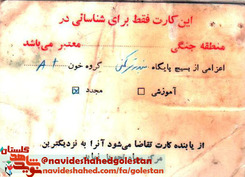 این کارت فقط برای شناسائی در
منطقه جنگی معتبر می‌باشد
اعزامی از بسیج پایگاه گروه خون A+
آموزشی □ مجدد ☒
از یابنده کارت تقاضا می‌شود آنرا به نزدیکترین
گلستان
@navideshahed.com/golestan
@navideshahed.com/fa/golestan